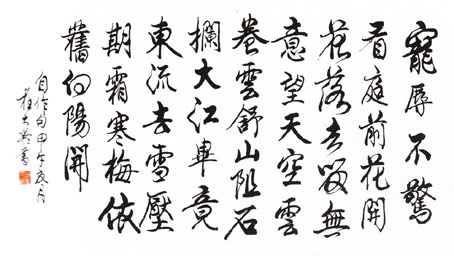 寵辱不驚
看庭前花開
花落去留無
意望天空雲
卷雲舒山阻石
攔大江畢竟
東流去雪壓
期霜寒梅依
舊向陽開
自作句甲午月
書